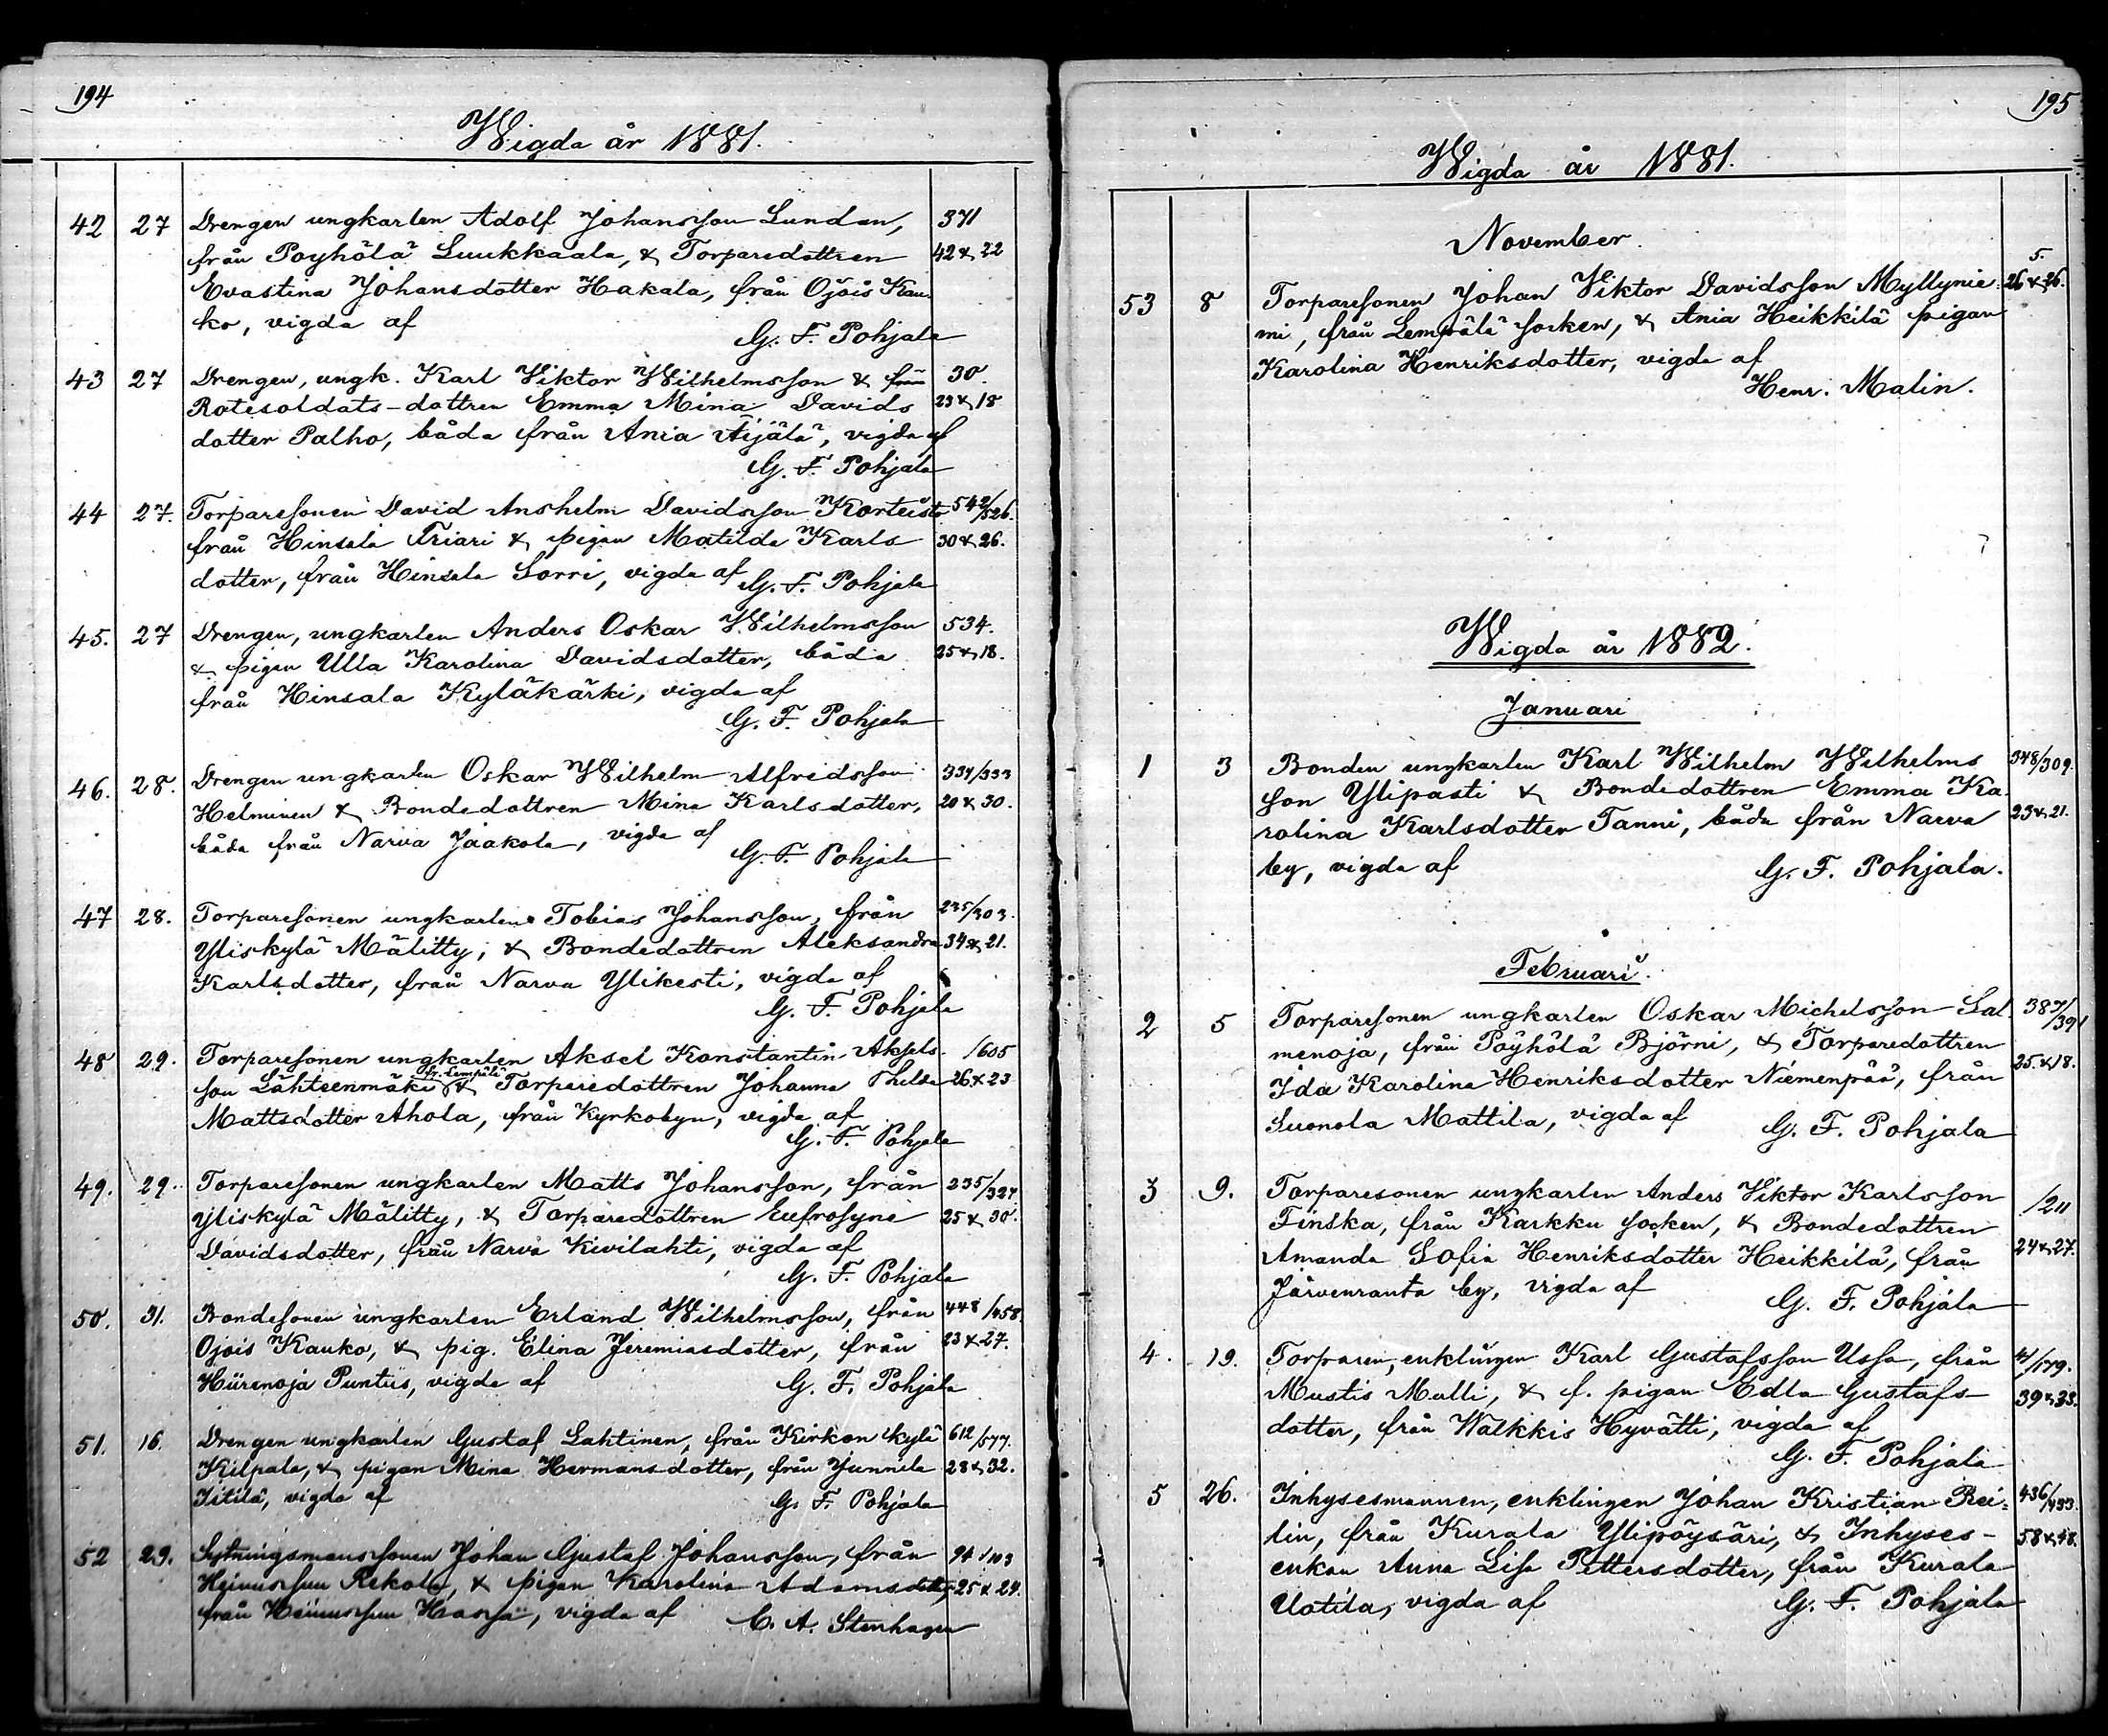 194
Wigda år 1881.
42 27 Drengen ungkarlen Adolf Johansson Lundan, 371
från Poyhölä Luukkaala, & Torparedottren 42 & 22
Evastina Johansdotter Hakala, från Ojois Kau-
ko, vigda af
G. F. Pohjala
43 27 Drengen, ungk. Karl Viktor Wilhelmsson & från 30.
Rotesoldats-dottren Emma Mina Davids 23 & 18
dotter Palho, båda från Ania Äijälä, vigda af
G. F. Pohjala
44 27. Torparesonen David Anshelm Davidsson Korteisto 542/526.
från Hinsala Friari & pigan Matilda Karls 30 & 26.
dotter, från Hinsala Sorri, vigda af G. F. Pohjala
45. 27 Drengen, ungkarlen Anders Oskar Wilhelmsson 534.
& pigan Ulla Karolina Davidsdotter, båda 25 & 18.
från Hinsala Kyläkärki, vigda af
G. F. Pohjala
46. 28. Drengen ungkarlen Oskar Wilhelm Alfredsson 334/333
Helminen & Bondedottren Mina Karlsdotter, 20 & 30.
båda från Narva Jaakola, vigda af
G. F. Pohjala
47 28. Torparesonen ungkarlen Tobias Johansson, från 235/303.
Yliskylä Mälitty, & Bondedottren Aleksandra 34 & 21.
Karlsdotter, från Narva Ylikesti, vigda af
G. F. Pohjala
48 29. Torparesonen ungkarlen Aksel Konstantin Aksels- /605
fr. Lempälä
son Lähteenmäki & Torparedottren Johanna Thilda 26 & 23
Mattsdotter Ahola, från Kyrkobyn, vigda af
G. F. Pohjala
49. 29. Torparesonen ungkarlen Matts Johansson, från 235/324
Yliskylä Mälitty, & Torparedottren Eufrosyne 25 & 30.
Davidsdotter, från Narva Kivilahti, vigda af
G. F. Pohjala
50. 31. Bondesonen ungkarlen Erland Wilhelmsson, från 448/458.
Ojois Kauko, & pig. Elina Jeremiasdotter, från 23 & 27.
Hiirenoja Puntiis, vigda af G. F. Pohjala
51. 16. Drengen ungkarlen Gustaf Lahtinen, från Kirkon kylä 612/577.
Kilpala, & pigan Mina Hermansdotter, från Junnila 28 & 32.
Iitilä, vigda af G. F. Pohjala
52 29. Sytningsmanssonen Johan Gustaf Johansson, från 94/103
Heinussuu Rekola, & pigan Karolina Adamsdotter, 25 & 24.
från Heinussuu Hassa, vigda af C. A. Stenhagen
195
Wigda år 1881.
November.
5.
53 8 Torparesonen Johan Viktor Davidsson Myllynie- 26 & 26.
mi, från Lempälä socken, & Ania Heikkilä pigan
Karolina Henriksdotter, vigda af
Henr. Malin.
Wigda år 1882.
Januari
1 3 Bonden ungkarlen Karl Wilhelm Wilhelms 348/309.
son Ylipasti & Bondedottren Emma Ka-
rolina Karlsdotter Tanni, båda från Narva 23 & 21.
by, vigda af G. F. Pohjala.
Februari.
2 5 Torparesonen ungkarlen Oskar Michelsson Sal- 387/391
menoja, från Pöyhölä Björni, & Torparedottren
Ida Karolina Henriksdotter Niemenpää, från 25. & 18.
Suonola Mattila, vigda af G. F. Pohjala
3 9. Torparesonen ungkarlen Anders Viktor Karlsson
Finska, från Karkku socken, & Bondedottren /211
Amanda Sofia Henriksdotter Heikkilä, från 24 & 27.
Järvenranta by, vigda af G. F. Pohjala
4. 19. Torparen, enklingen Karl Gustafsson Ussa, från
Mustis Mulli, & f. pigan Edla Gustafs 39 & 33.
dotter, från Walkkis Hyvätti, vigda af
G. F. Pohjala
5 26. Inhysesmannen, enklingen Johan Kristian Rei- 436/433.
lin, från Kurala Ylipöysäri, & Inhyses- 58 & 48.
enkan Anna Lisa Pettersdotter, från Kurala
Uotila, vigda af G. F. Pohjala